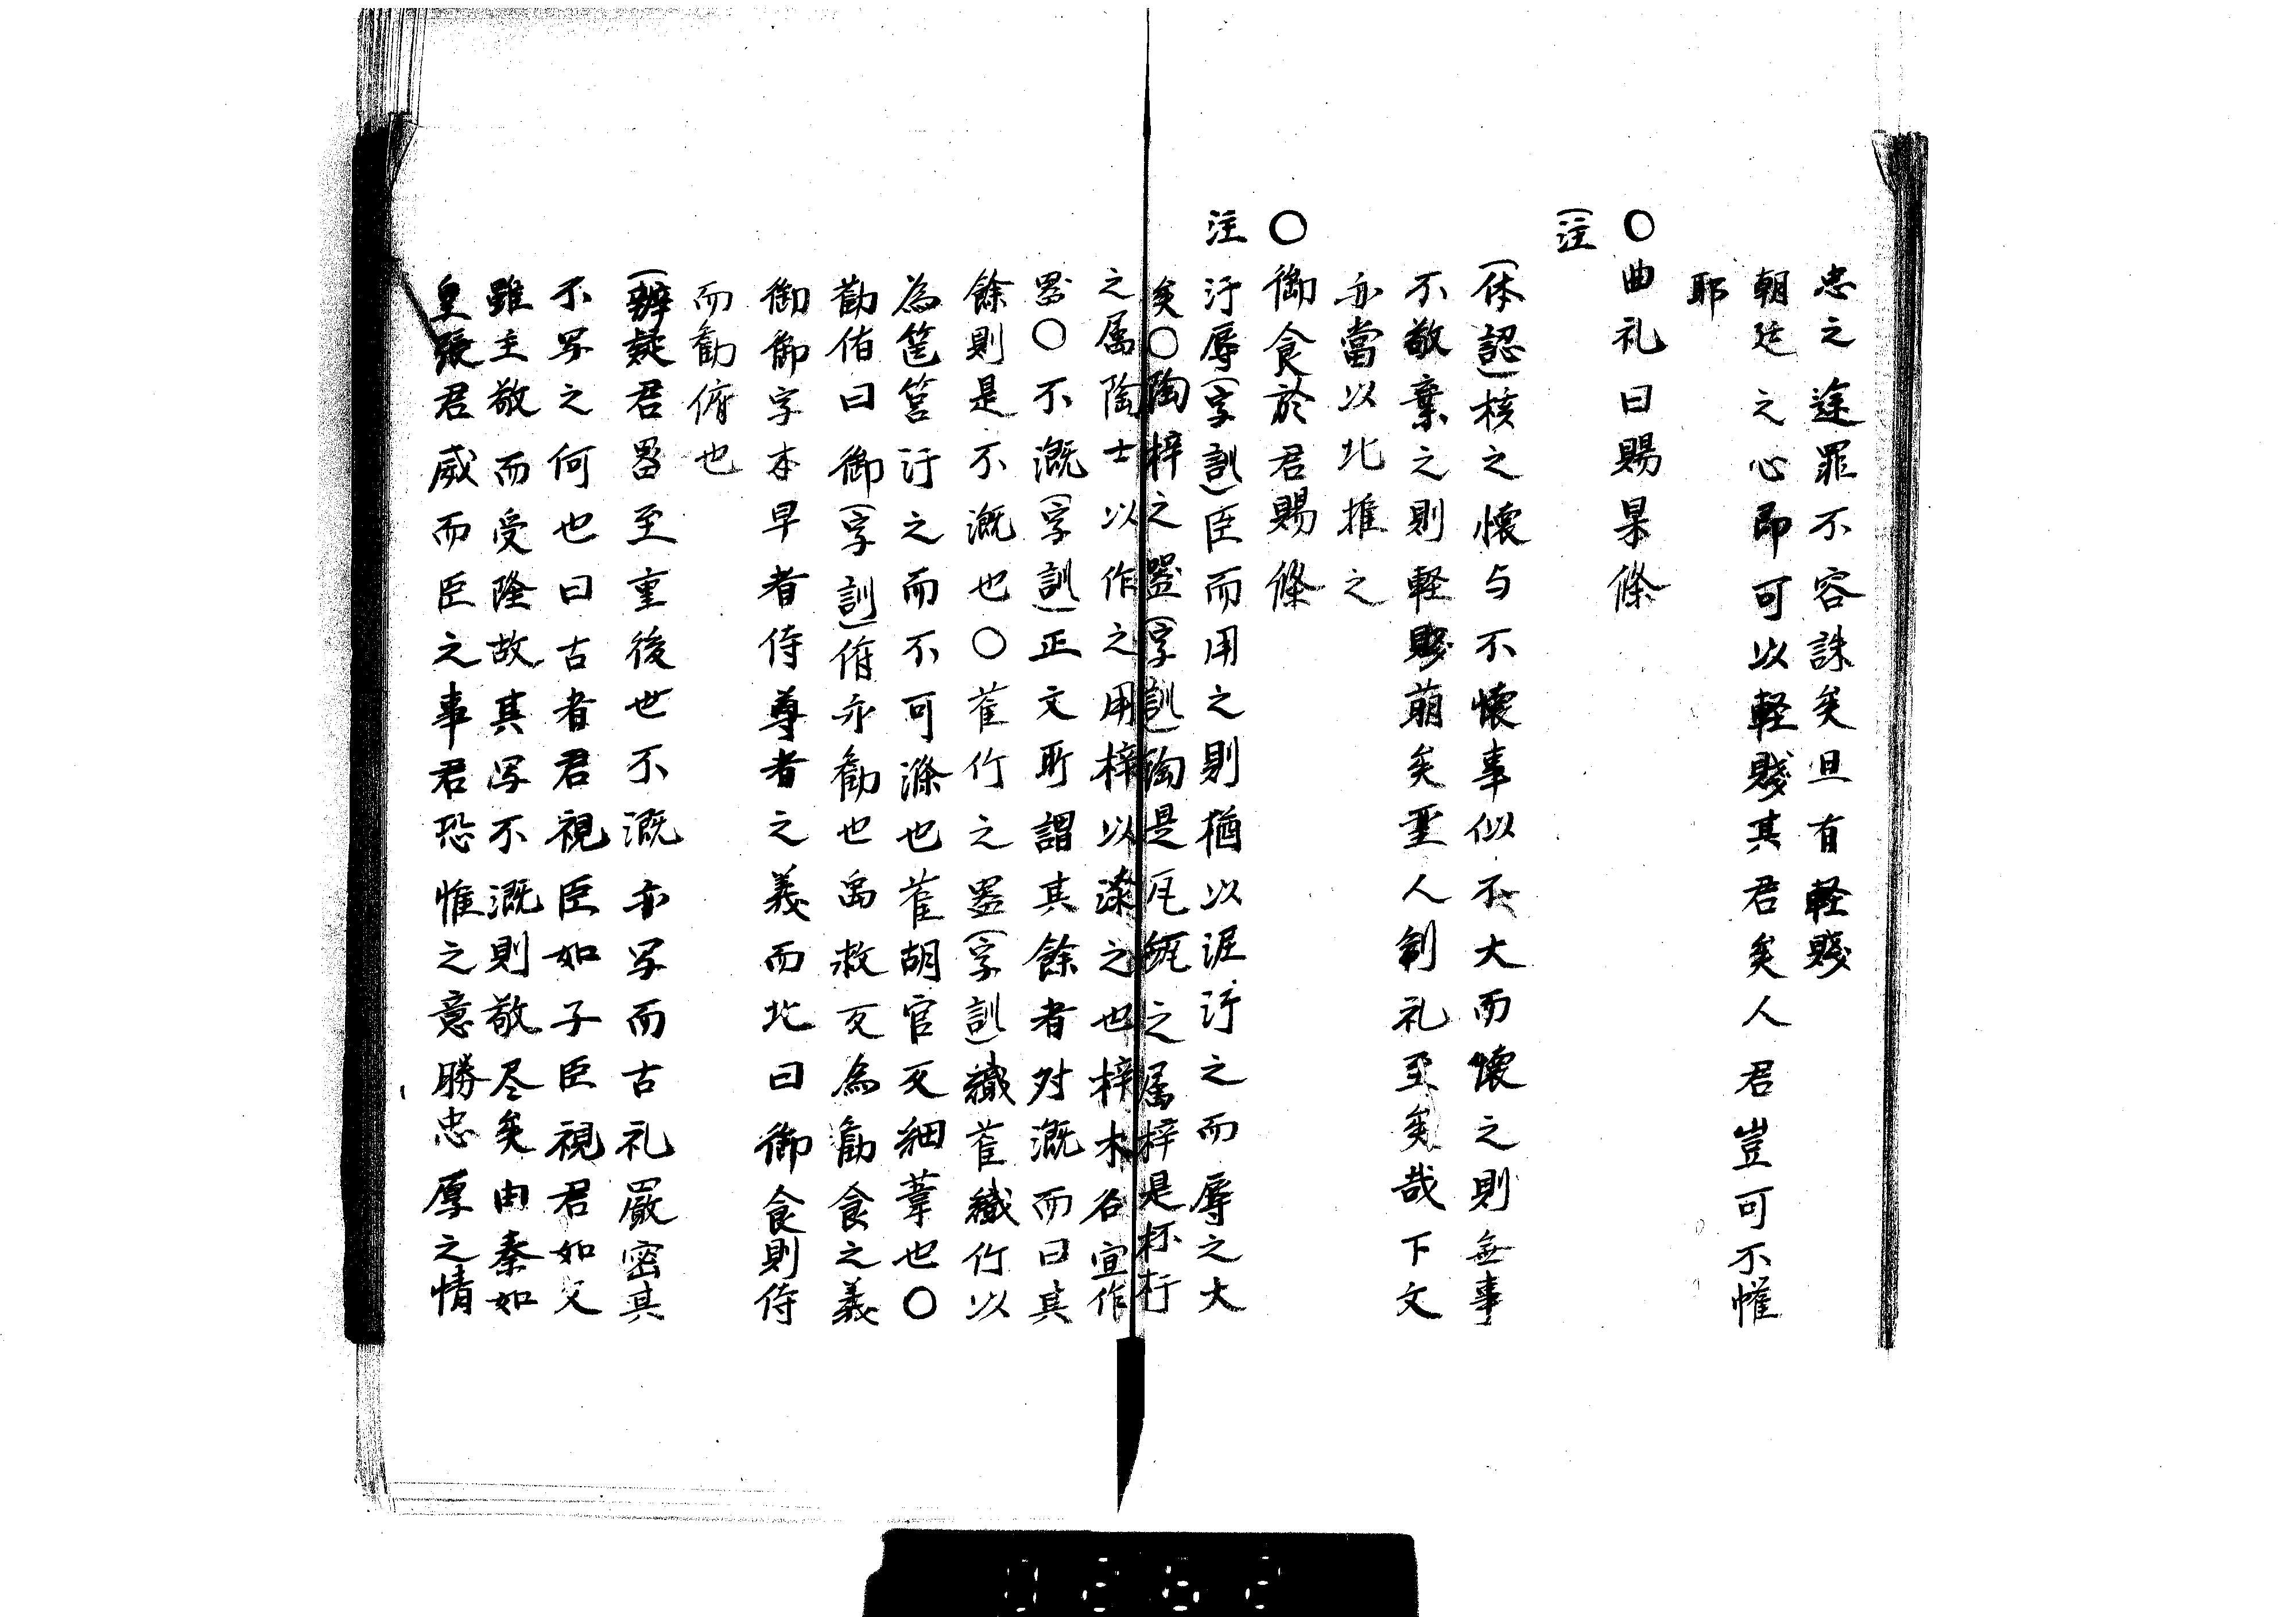 忠之途罪不容誅矣且有軽賤
朝廷之心即可以軽賤其君矣人君豈可不慬
耶
〇曲礼曰賜果條
(注
(体認)核之懐与不懐事似不大而懐之則無事
不敬棄之則軽賤萠矣聖人制礼至矣哉下文
亦當以此推之
〇御食於君賜條
注汙辱(字訓)臣而用之則猶以泥汙之而辱之大
矣〇陶梓之噐(字訓)陶是瓦甁之属梓是杯杅
之属陶士以作之用梓以漆之也梓木名宜作
噐〇不漑(字訓)正文所謂其餘者対漑而曰其
餘則是不漑也〇萑竹之噐(字訓)織萑織竹以
為筐筥汙之而不可滌也萑胡官反細葦也〇
勸侑曰御(字訓)侑亦勸也禹救反為勸食之義
御御字本早者侍尊者之義而此曰御食則侍
而勸侑也
(辨疑君噐至重後世不漑亦写而古礼嚴密其
不写之何也曰古者君視臣如子臣視君如父
雖主敬而受隆故其写不漑則敬尽矣由秦如
皇張君威而臣之事君恐惟之意勝忠厚之情